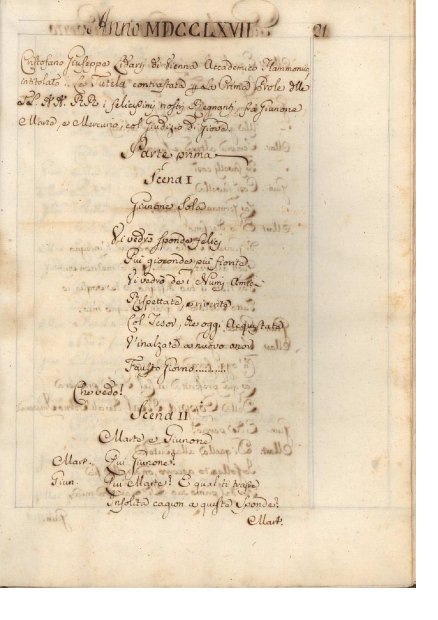 Anno MDCCLXVII 21
Cristofano Giuseppe di Vienna Accademico Flammonio
intitolato. La Tutela contrastata Prima Prole delle
RR. AA. i felicissimi nostri Regnanti, fra Giunone
Marte, e Mercurio, col Giudizio di Giove.
Parte prima
Scena I
Giunone Sola
Vi vedrò sponde felici
Più gioconde più fiorite
Vi vedrò de i Numi Amic
Rispettate, e riverite
Col Tesor, che oggi Acquistate
V'inalzate a nuovo onor
Fausto Giorno..........!
Che vedo!
Scena II
Marte e Giunone
Mart. Qui Giunone?
Giun. Qui Marte? E qual ti trasse
Insolita cagion a queste Sponde?
Mart.